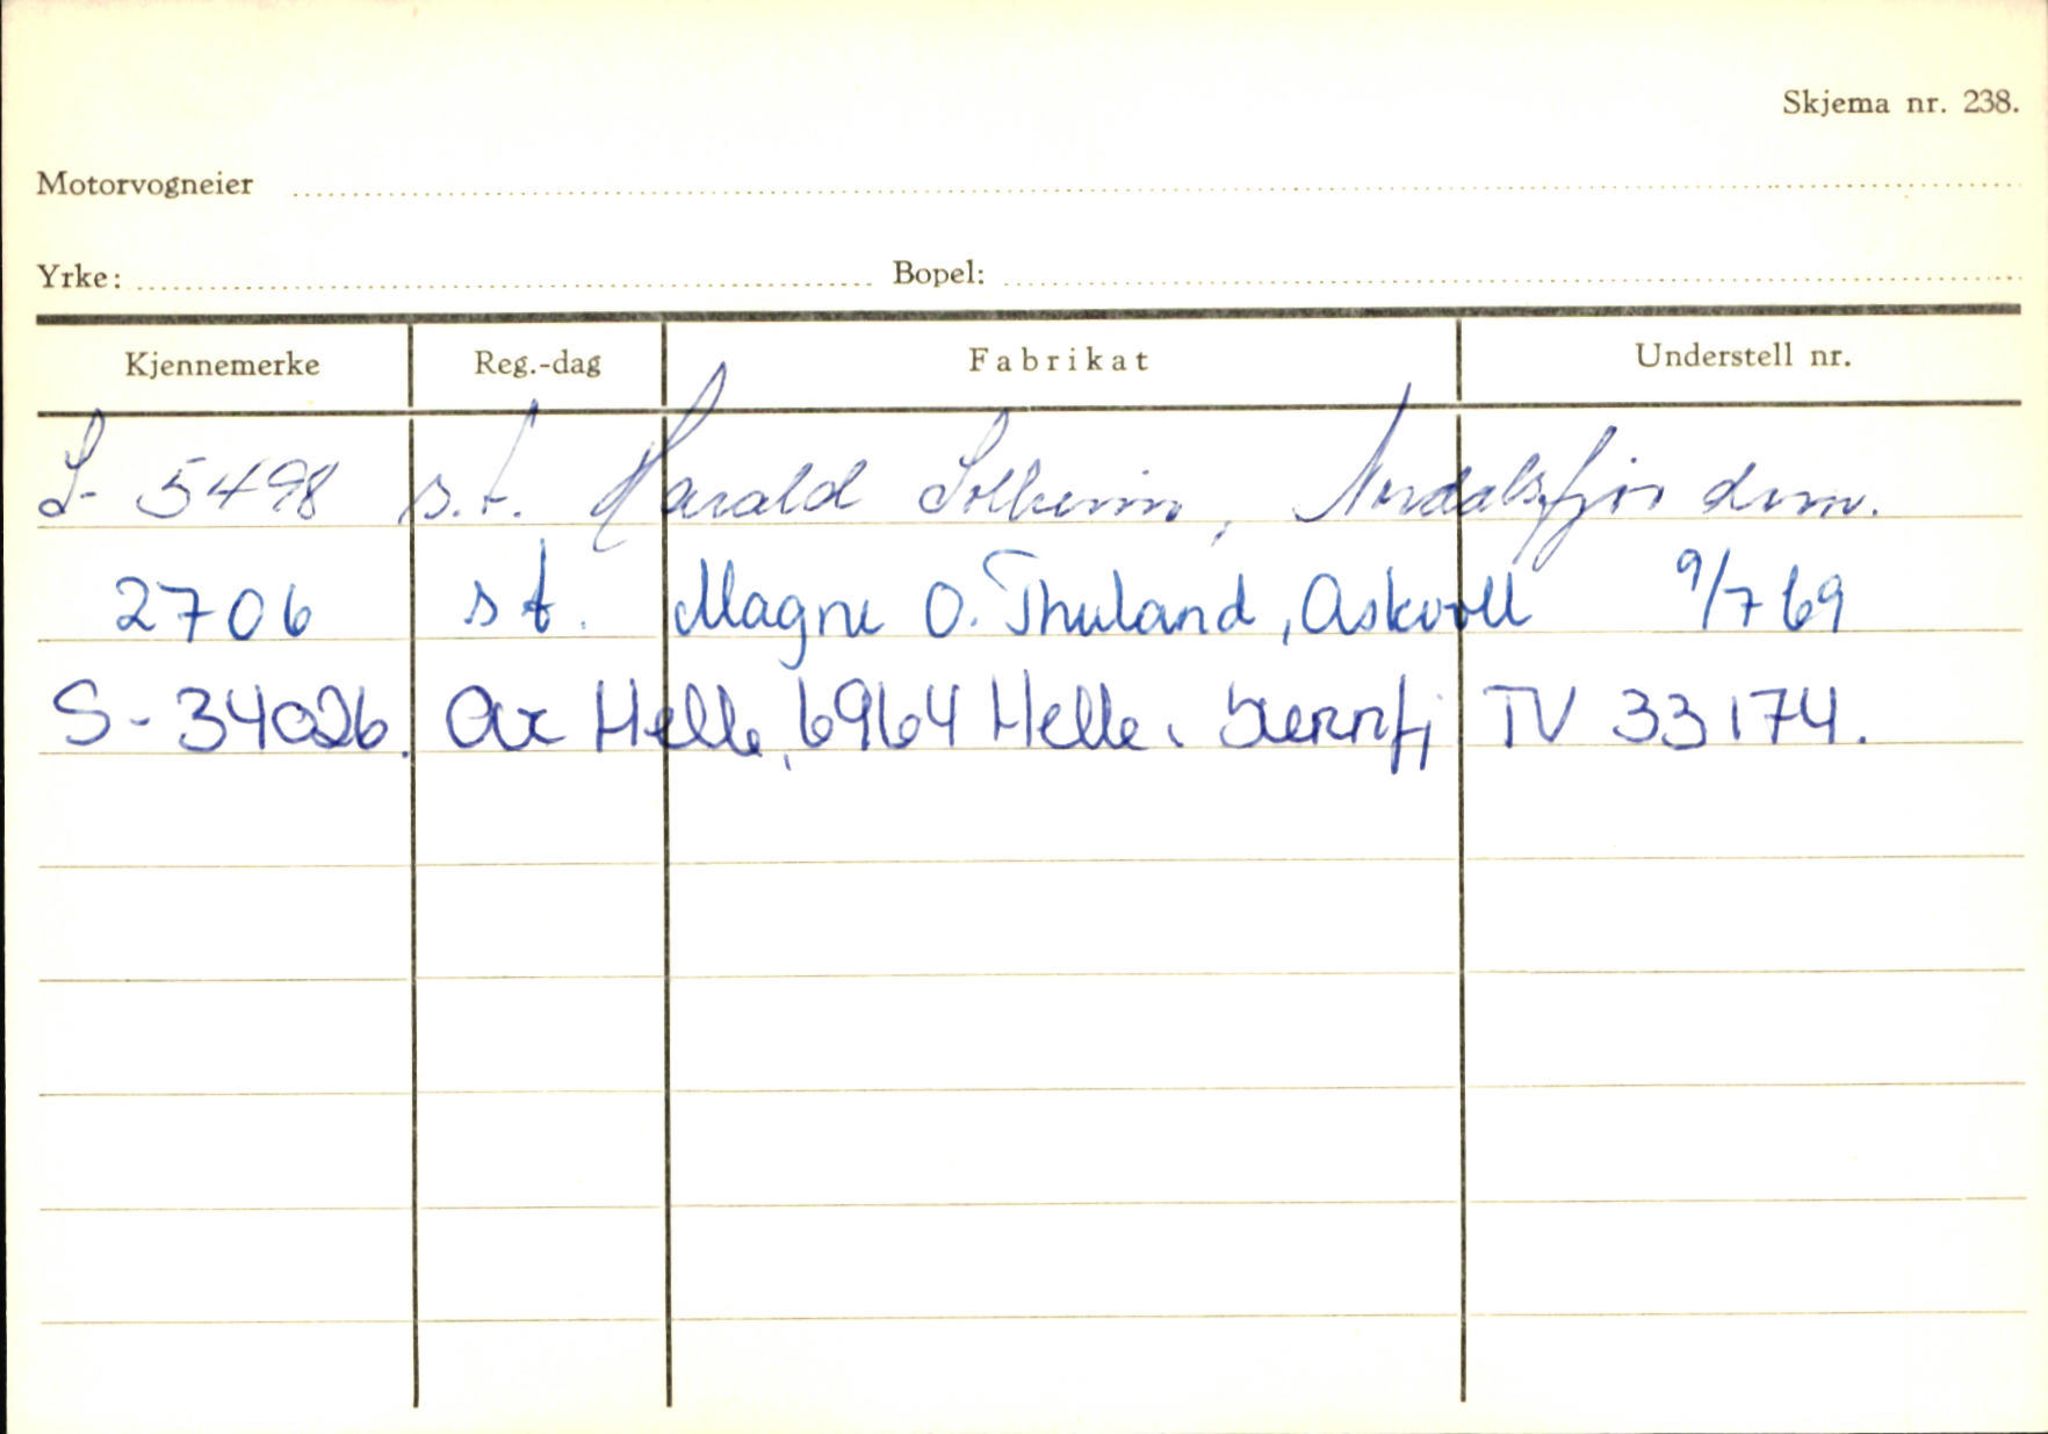 Skjema nr. 238.
Motorvogneier
Yrke: Bopel:
Kjennemerke Reg.-dag Fabrikat Understell nr.
S- 5498 s.t. Harald Solheim, Nordalsfjor dom.
2706 st. Magne O. Thuland, Askvoll 9/7 69
S-34026. Ax Helle, 6964 Helle i TV 33174.